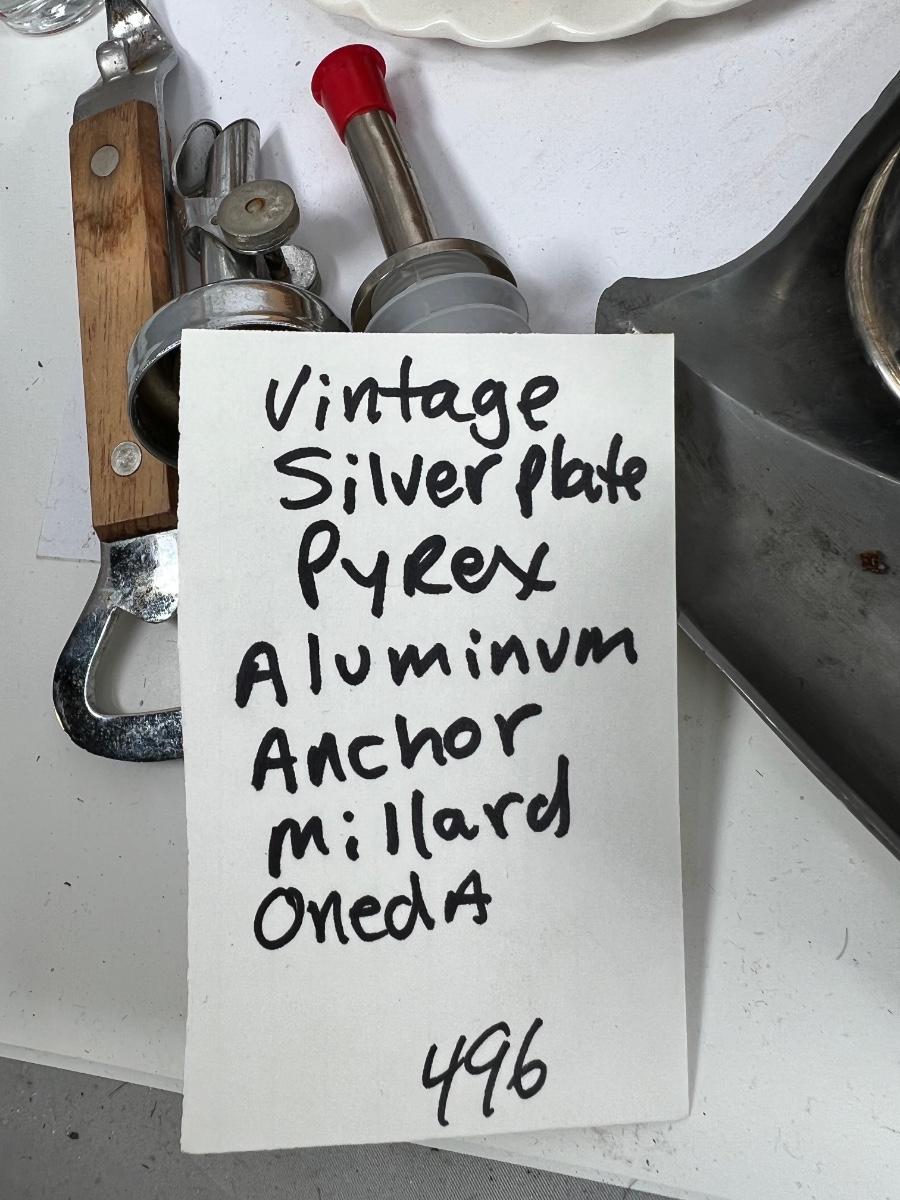 Vintage
Silver Plate
PyRex
Aluminum
Anchor
Millard
OnedA
496